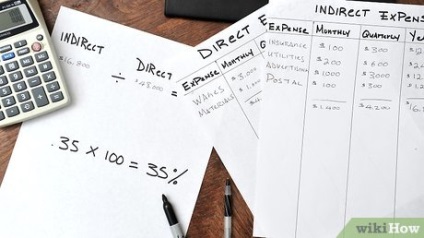 INDIRECT
$16,800
÷
DIRECT
$48,000
=
.35 X 100 = 35%
DIRECT E
EXPENSE MONTHLY
WAGES $3,000
MATERIALS
INDIRECT EXPENS
EXPENSE Monthly Quarterly Ye
INSURANCE $100 $300
UTILITIES $200 $600
ADVERTISING $1000 $3000
POSTAL $100 $300
$1,400 $4,200
wikiHow